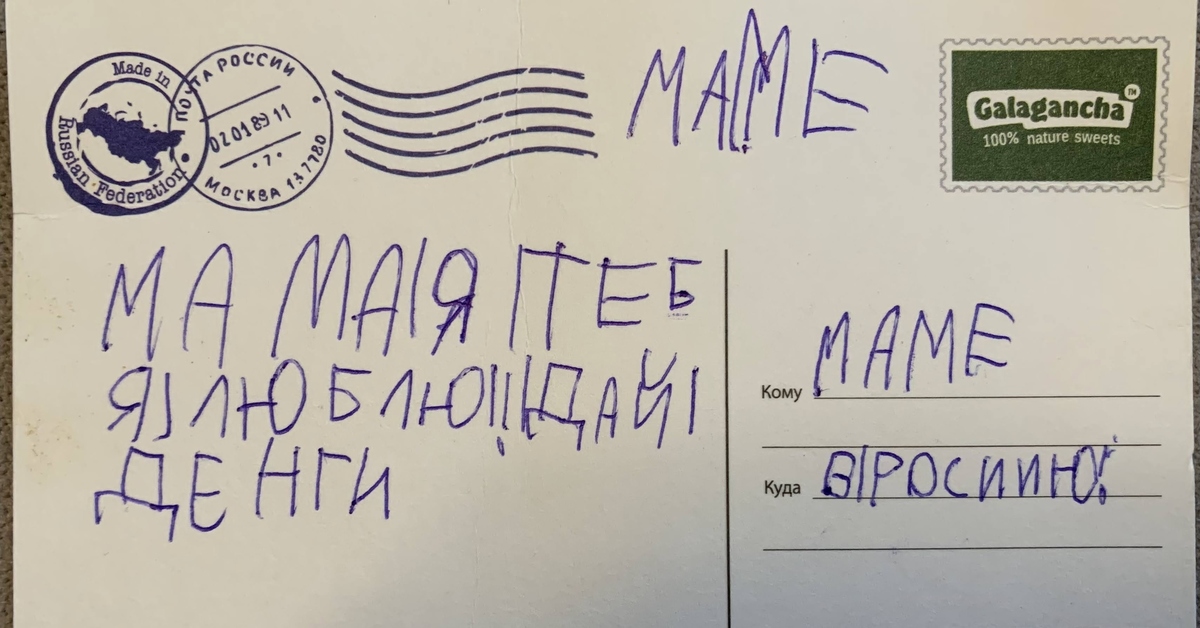 Made in
Russian Federation
ПОЧТА РОССИИ
02.01.89 11
• 7 •
МОСКВА 137780
МАМЕ
Galagancha™
100% nature sweets
МА МА|Я ТЕБ
Я|ЛЮБЛЮ!!|ДАЙ|
ДЕНГИ
Кому МАМЕ
Куда В|РОСИИЮ!